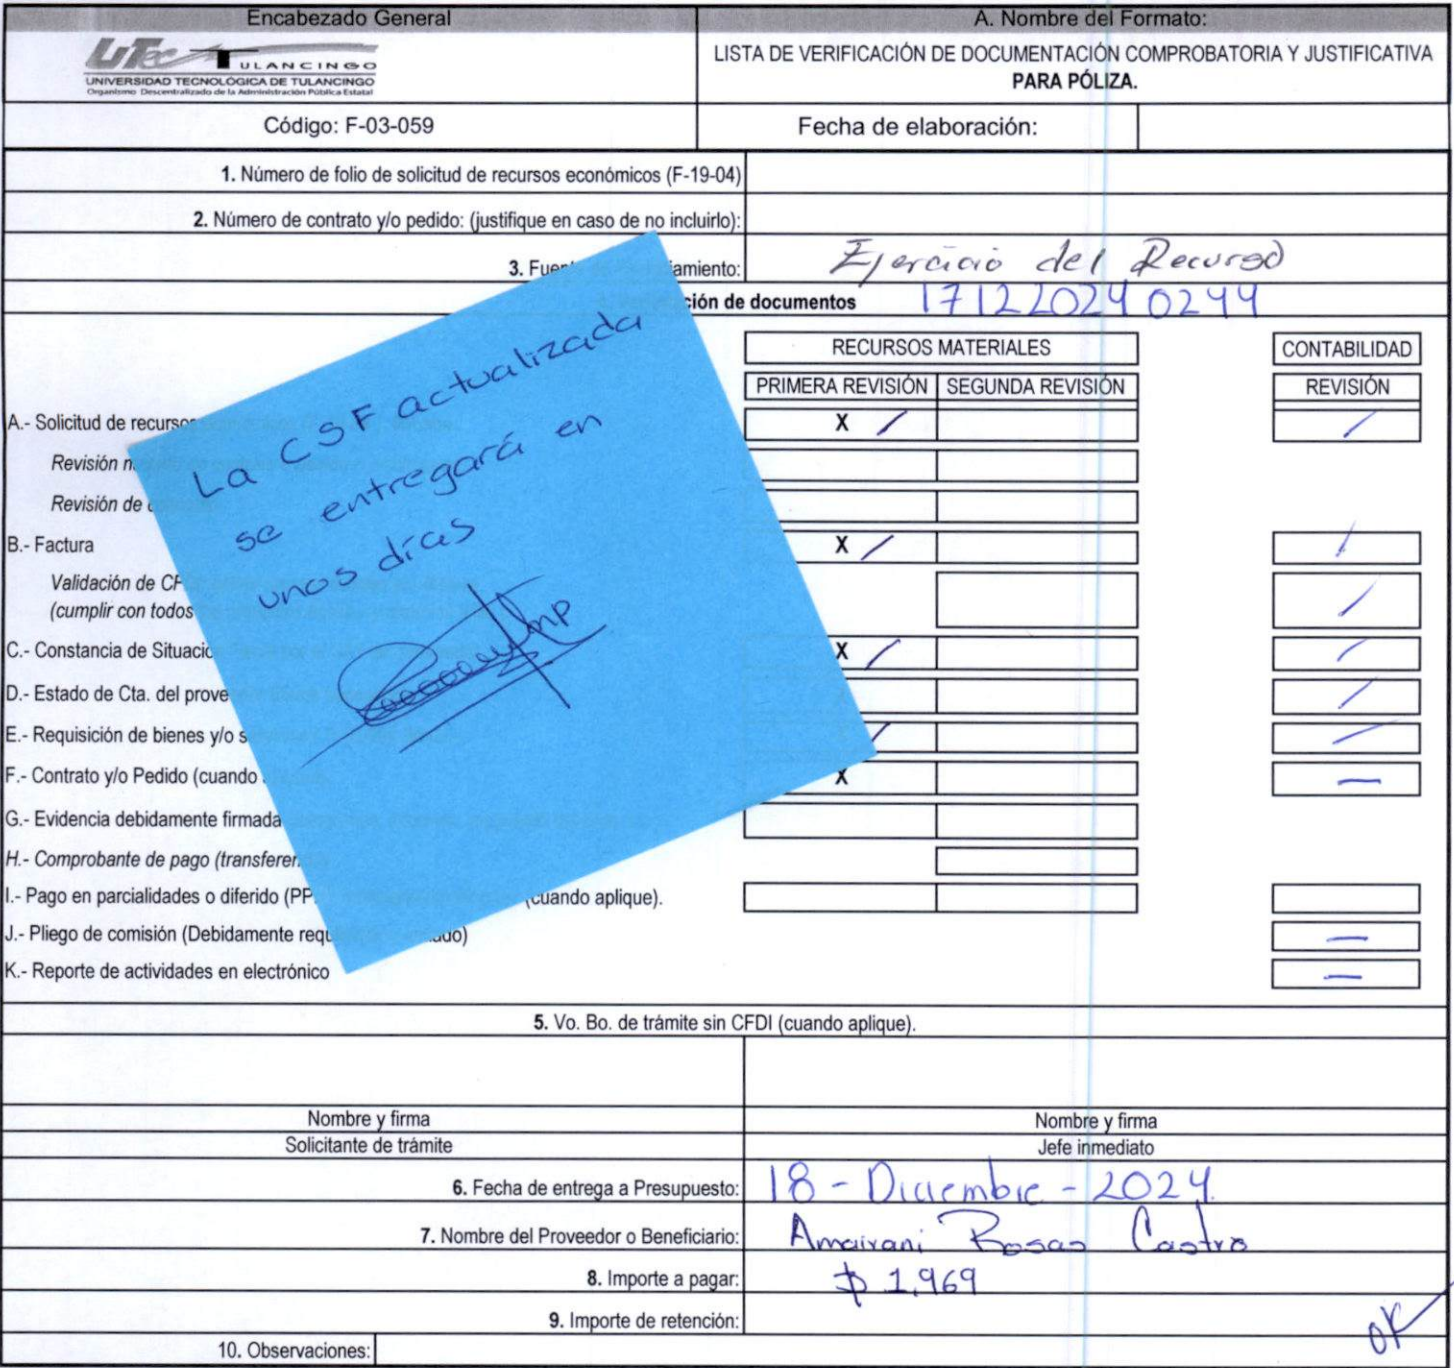 Encabezado General
A. Nombre del Formato:
UTec TULANCINGO
UNIVERSIDAD TECNOLÓGICA DE TULANCINGO
Organismo Descentralizado de la Administración Pública Estatal
LISTA DE VERIFICACIÓN DE DOCUMENTACIÓN COMPROBATORIA Y JUSTIFICATIVA
PARA PÓLIZA.
Código: F-03-059
Fecha de elaboración:
1. Número de folio de solicitud de recursos económicos (F-19-04)
2. Número de contrato y/o pedido: (justifique en caso de no incluirlo):
3. Fuen amiento: Ejercicio del Recurso
ción de documentos 171220240244
RECURSOS MATERIALES
CONTABILIDAD
PRIMERA REVISIÓN SEGUNDA REVISIÓN
REVISIÓN
A.- Solicitud de recursos X
Revisión
Revisión de
B.- Factura X
Validación de CF
(cumplir con todos
C.- Constancia de Situació X
D.- Estado de Cta. del prove
E.- Requisición de bienes y/o s
F.- Contrato y/o Pedido (cuando X
G.- Evidencia debidamente firmada
H.- Comprobante de pago (transferen
I.- Pago en parcialidades o diferido (PP (cuando aplique).
J.- Pliego de comisión (Debidamente requ ado)
K.- Reporte de actividades en electrónico
La CSF actualizada
se entregará en
unos días
5. Vo. Bo. de trámite sin CFDI (cuando aplique).
Nombre y firma
Nombre y firma
Solicitante de trámite
Jefe inmediato
6. Fecha de entrega a Presupuesto: 18 - Diciembre - 2024
7. Nombre del Proveedor o Beneficiario: Amairani Rosas Castro
8. Importe a pagar: $ 1,969
9. Importe de retención:
OK
10. Observaciones: